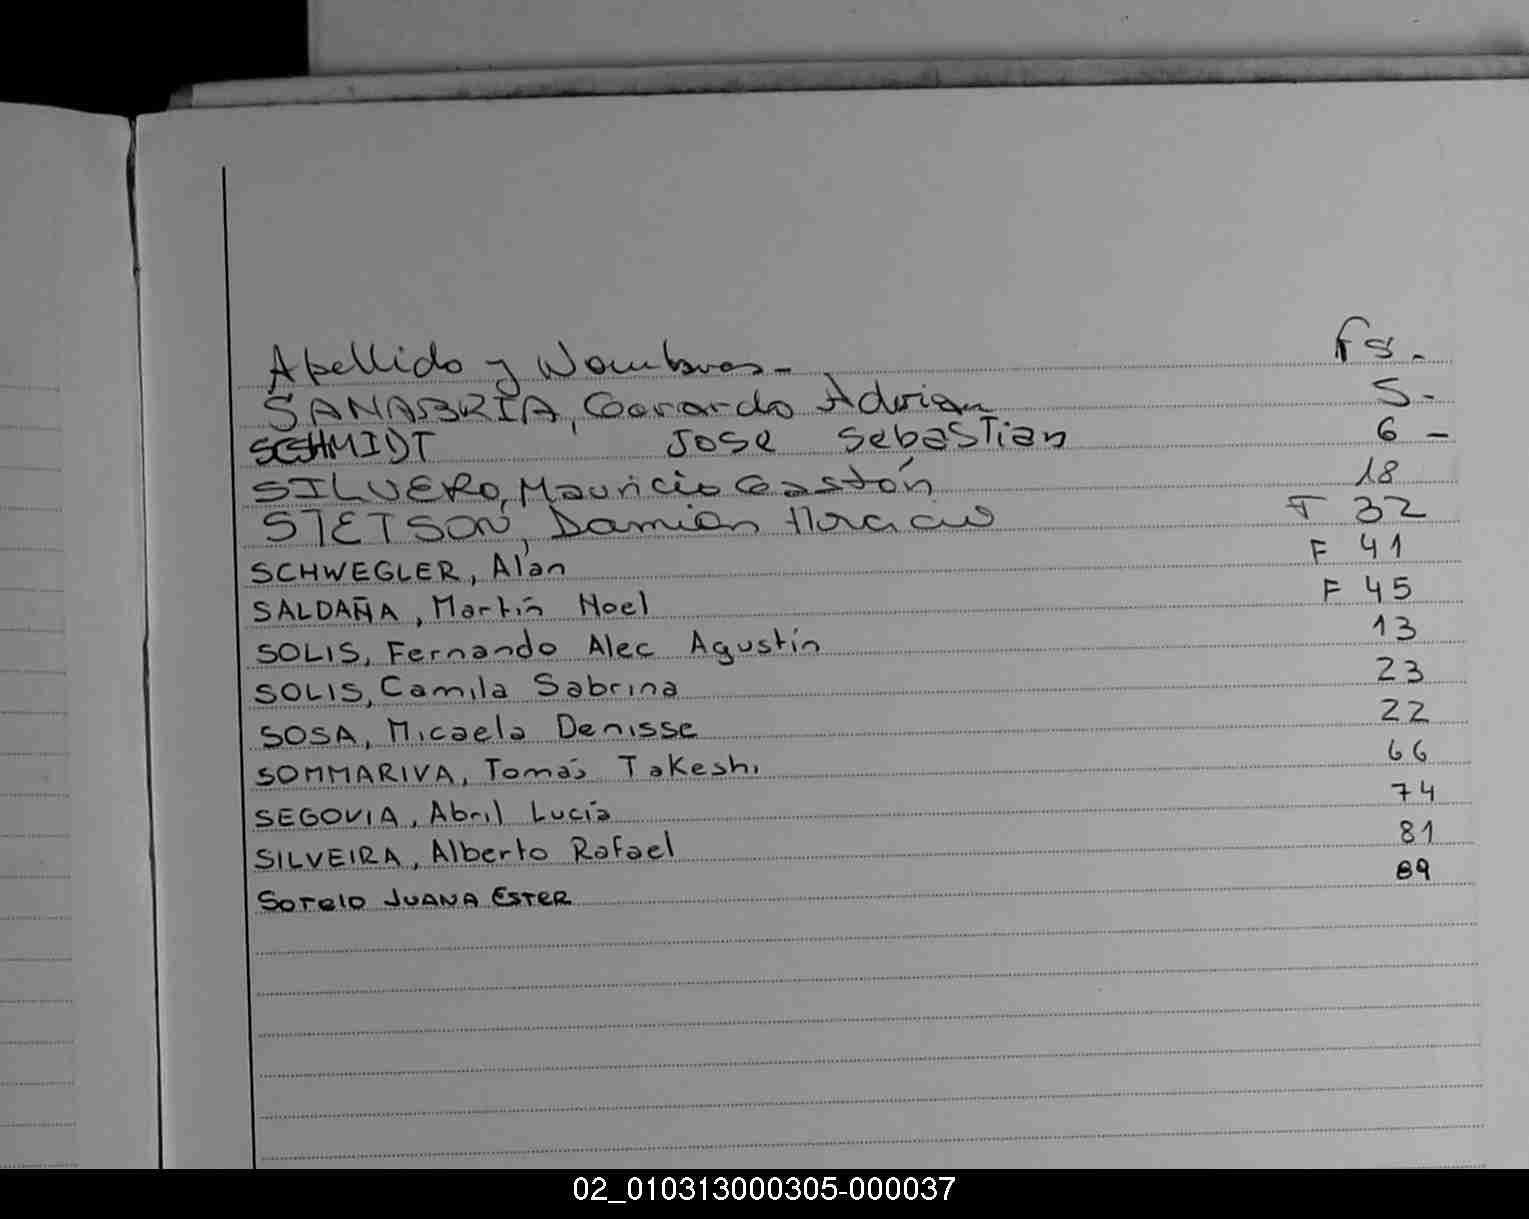 Apellido y Nombres - Fs.
SANABRIA, Gerardo Adrian 5.
SCHMIDT Jose Sebastian 6 -
SILVERO, Mauricio Gastón 18
STETSON, Damian Horacio F 32
SCHWEGLER, Alan F 41
SALDAÑA, Martín Noel F 45
SOLIS, Fernando Alec Agustín 13
SOLIS, Camila Sabrina 23
SOSA, Micaela Denisse 22
SOMMARIVA, Tomás Takeshi 66
SEGOVIA, Abril Lucía 74
SILVEIRA, Alberto Rafael 81
SOTELO JUANA ESTER 89
02_010313000305-000037